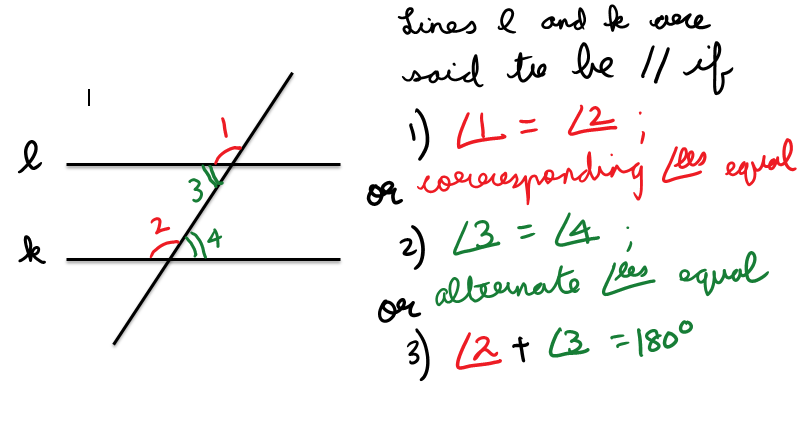 Lines l and k are
said to be // if
1) ∠1 = ∠2 ;
or corresponding ∠les equal
2) ∠3 = ∠4 ;
or alternate ∠les equal
3) ∠2 + ∠3 = 180°
l
k
1
3
2
4